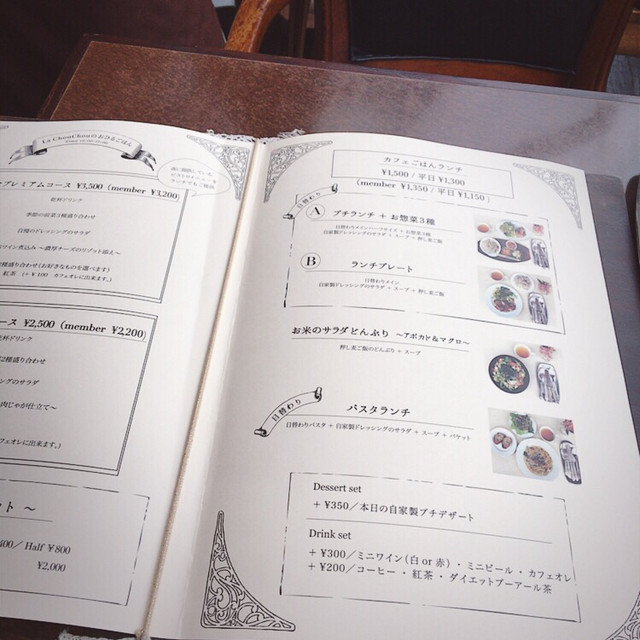 La ChouChouのおひるごはん
プレミアムコース ¥3,500 (member ¥3,200)
乾杯ドリンク
季節の前菜3種盛り合わせ
自慢のドレッシングのサラダ
ワイン煮込み 〜濃厚チーズのリゾット添え〜
種盛り合わせ(お好きなものを選べます)
紅茶 (+¥100 カフェオレに出来ます。)
ース ¥2,500 (member ¥2,200)
乾杯ドリンク
2種盛り合わせ
シングのサラダ
肉じゃが仕立て〜
フェオレに出来ます。)
ット 〜
400/ Half ¥800
¥2,000
カフェごはんランチ
¥1,500 / 平日 ¥1,300
(member ¥1,350 / 平日 ¥1,150)
日替わり
A プチランチ + お惣菜3種
日替わりメインハーフサイズ + お惣菜3種
自家製ドレッシングのサラダ + スープ + 押し麦ご飯
B ランチプレート
日替わりメイン
自家製ドレッシングのサラダ + スープ + 押し麦ご飯
お米のサラダどんぶり 〜アボカド&マグロ〜
押し麦ご飯のどんぶり + スープ
日替わり
パスタランチ
日替わりパスタ + 自家製ドレッシングのサラダ + スープ + バケット
Dessert set
+ ¥350/本日の自家製プチデザート
Drink set
+ ¥300/ミニワイン(白 or 赤)・ミニビール・カフェオレ
+ ¥200/コーヒー・紅茶・ダイエットプーアール茶